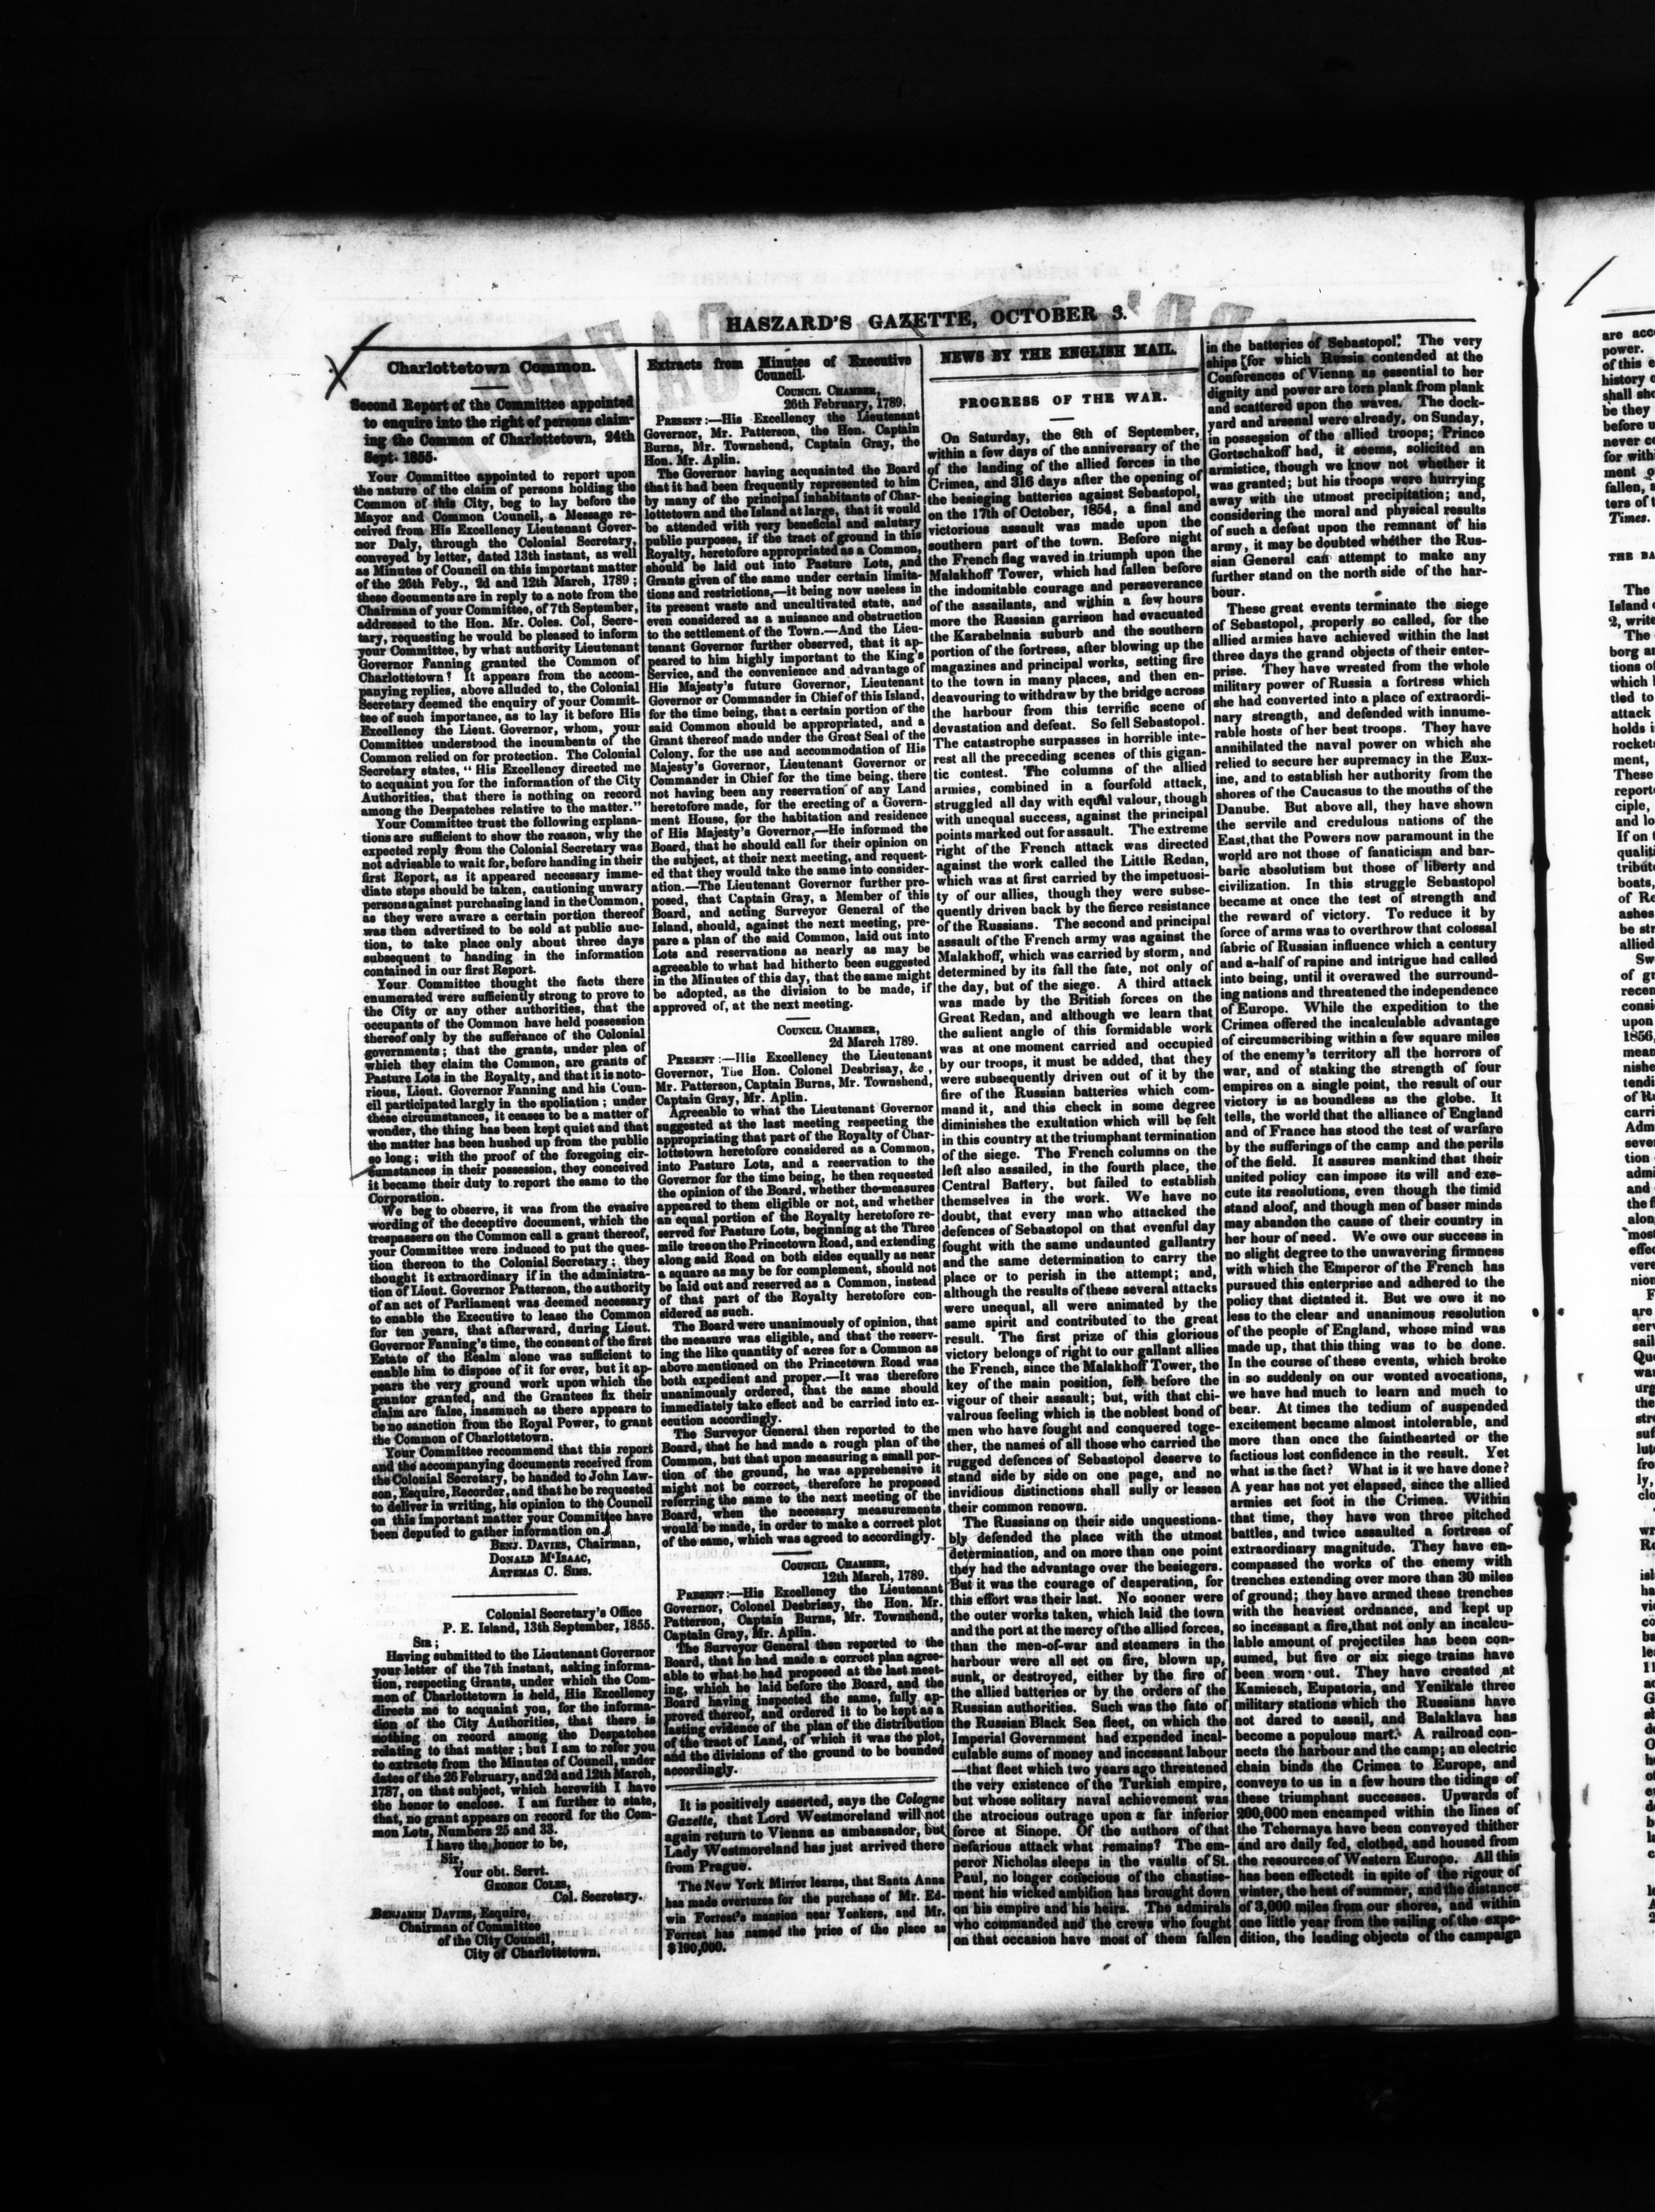 HASZARD'S GAZETTE, OCTOBER 3.
Charlottetown Common.
Second Report of the Committee appointed
to enquire into the right of persons claim-
ing the Common of Charlottetown, 24th
Sept. 1855.
Your Committee appointed to report upon
the nature of the claim of persons holding the
Common of this City, beg to lay before the
Mayor and Common Council, a Message re-
ceived from His Excellency Lieutenant Gover-
nor Daly, through the Colonial Secretary,
conveyed by letter, dated 13th instant, as well
as Minutes of Council on this important matter
of the 26th Feby., 2d and 12th March, 1789;
these documents are in reply to a note from the
Chairman of your Committee, of 7th September,
addressed to the Hon. Mr. Coles. Col, Secre-
tary, requesting he would be pleased to inform
your Committee, by what authority Lieutenant
Governor Fanning granted the Common of
Charlottetown! It appears from the accom-
panying replies, above alluded to, the Colonial
Secretary deemed the enquiry of your Commit-
tee of such importance, as to lay it before His
Excellency the Lieut. Governor, whom, your
Committee understood the incumbents of the
Common relied on for protection. The Colonial
Secretary states, "His Excellency directed me
to acquaint you for the information of the City
Authorities, that there is nothing on record
among the Despatches relative to the matter."
Your Committee trust the following explana-
tions are sufficient to show the reason, why the
expected reply from the Colonial Secretary was
not advisable to wait for, before handing in their
first Report, as it appeared necessary imme-
diate steps should be taken, cautioning unwary
persons against purchasing land in the Common,
as they were aware a certain portion thereof
was then advertized to be sold at public auc-
tion, to take place only about three days
subsequent to handing in the information
contained in our first Report.
Your Committee thought the facts there
enumerated were sufficiently strong to prove to
the City or any other authorities, that the
occupants of the Common have held possession
thereof only by the sufferance of the Colonial
governments; that the grants, under plea of
which they claim the Common, are grants of
Pasture Lots in the Royalty, and that it is noto-
rious, Lieut. Governor Fanning and his Coun-
cil participated largely in the spoliation; under
these circumstances, it ceases to be a matter of
wonder, the thing has been kept quiet and that
the matter has been hushed up from the public
so long; with the proof of the foregoing cir-
cumstances in their possession, they conceived
it became their duty to report the same to the
Corporation.
We beg to observe, it was from the evasive
wording of the deceptive document, which the
trespassers on the Common call a grant thereof,
your Committee were induced to put the ques-
tion thereon to the Colonial Secretary; they
thought it extraordinary if in the administra-
tion of Lieut. Governor Patterson, the authority
of an act of Parliament was deemed necessary
to enable the Executive to lease the Common
for ten years, that afterward, during Lieut.
Governor Fanning's time, the consent of the first
Estate of the Realm alone was sufficient to
enable him to dispose of it for ever, but it ap-
pears the very ground work upon which the
grantor granted, and the Grantees fix their
claim are false, inasmuch as there appears to
be no sanction from the Royal Power, to grant
the Common of Charlottetown.
Your Committee recommend that this report
and the accompanying documents received from
the Colonial Secretary, be handed to John Law-
son, Esquire, Recorder, and that he be requested
to deliver in writing, his opinion to the Council
on this important matter your Committee have
been deputed to gather information on.
BENJ. DAVIES, Chairman,
DONALD M'ISAAC,
ARTEMAS C. SIMS.
Colonial Secretary's Office
P. E. Island, 13th September, 1855.
SIR;
Having submitted to the Lieutenant Governor
your letter of the 7th instant, asking informa-
tion, respecting Grants, under which the Com-
mon of Charlottetown is held, His Excellency
directs me to acquaint you, for the informa-
tion of the City Authorities, that there is
nothing on record among the Despatches
relating to that matter; but I am to refer you
to extracts from the Minutes of Council, under
dates of the 26 February, and 2d and 12th March,
1787, on that subject, which herewith I have
the honor to enclose. I am further to state,
that, no grant appears on record for the Com-
mon Lots, Numbers 25 and 33.
I have the honor to be,
Sir,
Your obt. Servt.
GEORGE COLES,
Col. Secretary.
BENJAMIN DAVIES, Esquire,
Chairman of Committee
of the City Council,
City of Charlottetown.
Extracts from Minutes of Executive
Council.
COUNCIL CHAMBER,
26th February, 1789.
PRESENT:—His Excellency the Lieutenant
Governor, Mr. Patterson, the Hon. Captain
Burns, Mr. Townshend, Captain Gray, the
Hon. Mr. Aplin.
The Governor having acquainted the Board
that it had been frequently represented to him
by many of the principal inhabitants of Char-
lottetown and the Island at large, that it would
be attended with very beneficial and salutary
public purposes, if the tract of ground in this
Royalty, heretofore appropriated as a Common,
should be laid out into Pasture Lots, and
Grants given of the same under certain limita-
tions and restrictions,—it being now useless in
its present waste and uncultivated state, and
even considered as a nuisance and obstruction
to the settlement of the Town.—And the Lieu-
tenant Governor further observed, that it ap-
peared to him highly important to the King's
Service, and the convenience and advantage of
His Majesty's future Governor, Lieutenant
Governor or Commander in Chief of this Island,
for the time being, that a certain portion of the
said Common should be appropriated, and a
Grant thereof made under the Great Seal of the
Colony, for the use and accommodation of His
Majesty's Governor, Lieutenant Governor or
Commander in Chief for the time being, there
not having been any reservation of any Land
heretofore made, for the erecting of a Govern-
ment House, for the habitation and residence
of His Majesty's Governor,—He informed the
Board, that he should call for their opinion on
the subject, at their next meeting, and request-
ed that they would take the same into consider-
ation.—The Lieutenant Governor further pro-
posed, that Captain Gray, a Member of this
Board, and acting Surveyor General of the
Island, should, against the next meeting, pre-
pare a plan of the said Common, laid out into
Lots and reservations as nearly as may be
agreeable to what had hitherto been suggested
in the Minutes of this day, that the same might
be adopted, as the division to be made, if
approved of, at the next meeting.
COUNCIL CHAMBER,
2d March 1789.
PRESENT:—His Excellency the Lieutenant
Governor, The Hon. Colonel Desbrisay, &c,
Mr. Patterson, Captain Burns, Mr. Townshend,
Captain Gray, Mr. Aplin.
Agreeable to what the Lieutenant Governor
suggested at the last meeting respecting the
appropriating that part of the Royalty of Char-
lottetown heretofore considered as a Common,
into Pasture Lots, and a reservation to the
Governor for the time being, he then requested
the opinion of the Board, whether the measures
appeared to them eligible or not, and whether
an equal portion of the Royalty heretofore re-
served for Pasture Lots, beginning at the Three
mile tree on the Princetown Road, and extending
along said Road on both sides equally as near
a square as may be for complement, should not
be laid out and reserved as a Common, instead
of that part of the Royalty heretofore con-
sidered as such.
The Board were unanimously of opinion, that
the measure was eligible, and that the reserv-
ing the like quantity of acres for a Common as
above mentioned on the Princetown Road was
both expedient and proper.—It was therefore
unanimously ordered, that the same should
immediately take effect and be carried into ex-
ecution accordingly.
The Surveyor General then reported to the
Board, that he had made a rough plan of the
Common, but that upon measuring a small por-
tion of the ground, he was apprehensive it
might not be correct, therefore he proposed
referring the same to the next meeting of the
Board, when the necessary measurements
would be made, in order to make a correct plot
of the same, which was agreed to accordingly.
COUNCIL CHAMBER,
12th March, 1789.
PRESENT:—His Excellency the Lieutenant
Governor, Colonel Desbrisay, the Hon. Mr.
Patterson, Captain Burns, Mr. Townshend,
Captain Gray, Mr. Aplin.
The Surveyor General then reported to the
Board, that he had made a correct plan agree-
able to what he had proposed at the last meet-
ing, which he laid before the Board, and the
Board having inspected the same, fully ap-
proved thereof, and ordered it to be kept as a
lasting evidence of the plan of the distribution
of the tract of Land, of which it was the plot,
and the divisions of the ground to be bounded
accordingly.
It is positively asserted, says the Cologne
Gazette, that Lord Westmoreland will not
again return to Vienna as ambassador, but
Lady Westmoreland has just arrived there
from Prague.
The New York Mirror learns, that Santa Anna
has made overtures for the purchase of Mr. Ed-
win Forrest's mansion near Yonkers, and Mr.
Forrest has named the price of the place as
$100,000.
NEWS BY THE ENGLISH MAIL.
PROGRESS OF THE WAR.
On Saturday, the 8th of September,
within a few days of the anniversary of the
of the landing of the allied forces in the
Crimea, and 316 days after the opening of
the besieging batteries against Sebastopol,
on the 17th of October, 1854, a final and
victorious assault was made upon the
southern part of the town. Before night
the French flag waved in triumph upon the
Malakhoff Tower, which had fallen before
the indomitable courage and perseverance
of the assailants, and within a few hours
more the Russian garrison had evacuated
the Karabelnaia suburb and the southern
portion of the fortress, after blowing up the
magazines and principal works, setting fire
to the town in many places, and then en-
deavouring to withdraw by the bridge across
the harbour from this terrific scene of
devastation and defeat. So fell Sebastopol.
The catastrophe surpasses in horrible inte-
rest all the preceding scenes of this gigan-
tic contest. The columns of the allied
armies, combined in a fourfold attack,
struggled all day with equal valour, though
with unequal success, against the principal
points marked out for assault. The extreme
right of the French attack was directed
against the work called the Little Redan,
which was at first carried by the impetuosi-
ty of our allies, though they were subse-
quently driven back by the fierce resistance
of the Russians. The second and principal
assault of the French army was against the
Malakhoff, which was carried by storm, and
determined by its fall the fate, not only of
the day, but of the siege. A third attack
was made by the British forces on the
Great Redan, and although we learn that
the salient angle of this formidable work
was at one moment carried and occupied
by our troops, it must be added, that they
were subsequently driven out of it by the
fire of the Russian batteries which com-
mand it, and this check in some degree
diminishes the exultation which will be felt
in this country at the triumphant termination
of the siege. The French columns on the
left also assailed, in the fourth place, the
Central Battery, but failed to establish
themselves in the work. We have no
doubt, that every man who attacked the
defences of Sebastopol on that evenful day
fought with the same undaunted gallantry
and the same determination to carry the
place or to perish in the attempt; and,
although the results of these several attacks
were unequal, all were animated by the
same spirit and contributed to the great
result. The first prize of this glorious
victory belongs of right to our gallant allies
the French, since the Malakhoff Tower, the
key of the main position, fell before the
vigour of their assault; but, with that chi-
valrous feeling which is the noblest bond of
men who have fought and conquered toge-
ther, the names of all those who carried the
rugged defences of Sebastopol deserve to
stand side by side on one page, and no
invidious distinctions shall sully or lessen
their common renown.
The Russians on their side unquestiona-
bly defended the place with the utmost
determination, and on more than one point
they had the advantage over the besiegers.
But it was the courage of desperation, for
this effort was their last. No sooner were
the outer works taken, which laid the town
and the port at the mercy of the allied forces,
than the men-of-war and steamers in the
harbour were all set on fire, blown up,
sunk, or destroyed, either by the fire of
the allied batteries or by the orders of the
Russian authorities. Such was the fate of
the Russian Black Sea fleet, on which the
Imperial Government had expended incal-
culable sums of money and incessant labour
—that fleet which two years ago threatened
the very existence of the Turkish empire,
but whose solitary naval achievement was
the atrocious outrage upon a far inferior
force at Sinope. Of the authors of that
nefarious attack what remains? The em-
peror Nicholas sleeps in the vaults of St.
Paul, no longer conscious of the chastise-
ment his wicked ambition has brought down
on his empire and his heirs. The admirals
who commanded and the crews who fought
on that occasion have most of them fallen
in the batteries of Sebastopol. The very
ships for which Russia contended at the
Conferences of Vienna as essential to her
dignity and power are torn plank from plank
and scattered upon the waves. The dock-
yard and arsenal were already, on Sunday,
in possession of the allied troops; Prince
Gortschakoff had, it seems, solicited an
armistice, though we know not whether it
was granted; but his troops were hurrying
away with the utmost precipitation; and,
considering the moral and physical results
of such a defeat upon the remnant of his
army, it may be doubted whether the Rus-
sian General can attempt to make any
further stand on the north side of the har-
bour.
These great events terminate the siege
of Sebastopol, properly so called, for the
allied armies have achieved within the last
three days the grand objects of their enter-
prise. They have wrested from the whole
military power of Russia a fortress which
she had converted into a place of extraordi-
nary strength, and defended with innume-
rable hosts of her best troops. They have
annihilated the naval power on which she
relied to secure her supremacy in the Eux-
ine, and to establish her authority from the
shores of the Caucasus to the mouths of the
Danube. But above all, they have shown
the servile and credulous nations of the
East, that the Powers now paramount in the
world are not those of fanaticism and bar-
baric absolutism but those of liberty and
civilization. In this struggle Sebastopol
became at once the test of strength and
the reward of victory. To reduce it by
force of arms was to overthrow that colossal
fabric of Russian influence which a century
and a-half of rapine and intrigue had called
into being, until it overawed the surround-
ing nations and threatened the independence
of Europe. While the expedition to the
Crimea offered the incalculable advantage
of circumscribing within a few square miles
of the enemy's territory all the horrors of
war, and of staking the strength of four
empires on a single point, the result of our
victory is as boundless as the globe. It
tells, the world that the alliance of England
and of France has stood the test of warfare
by the sufferings of the camp and the perils
of the field. It assures mankind that their
united policy can impose its will and exe-
cute its resolutions, even though the timid
stand aloof, and though men of baser minds
may abandon the cause of their country in
her hour of need. We owe our success in
no slight degree to the unwavering firmness
with which the Emperor of the French has
pursued this enterprise and adhered to the
policy that dictated it. But we owe it no
less to the clear and unanimous resolution
of the people of England, whose mind was
made up, that this thing was to be done.
In the course of these events, which broke
in so suddenly on our wonted avocations,
we have had much to learn and much to
bear. At times the tedium of suspended
excitement became almost intolerable, and
more than once the fainthearted or the
factious lost confidence in the result. Yet
what is the fact? What is it we have done?
A year has not yet elapsed, since the allied
armies set foot in the Crimea. Within
that time, they have won three pitched
battles, and twice assaulted a fortress of
extraordinary magnitude. They have en-
compassed the works of the enemy with
trenches extending over more than 30 miles
of ground; they have armed these trenches
with the heaviest ordnance, and kept up
so incessant a fire, that not only an incalcu-
lable amount of projectiles has been con-
sumed, but five or six siege trains have
been worn out. They have created at
Kamiesch, Eupatoria, and Yenikale three
military stations which the Russians have
not dared to assail, and Balaklava has
become a populous mart. A railroad con-
nects the harbour and the camp; an electric
chain binds the Crimea to Europe, and
conveys to us in a few hours the tidings of
these triumphant successes. Upwards of
200,000 men encamped within the lines of
the Tchernaya have been conveyed thither
and are daily fed, clothed, and housed from
the resources of Western Europe. All this
has been effectedt in spite of the rigour of
winter, the heat of summer, and the distance
of 3,000 miles from our shores, and within
one little year from the sailing of the expe-
dition, the leading objects of the campaign